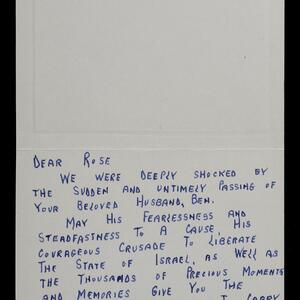 DEAR ROSE
WE WERE DEEPLY SHOCKED BY
THE SUDDEN AND UNTIMELY PASSING OF
YOUR BELOVED HUSBAND, BEN.
MAY HIS FEARLESSNESS AND
STEADFASTNESS TO A CAUSE, HIS
COURAGEOUS CRUSADE TO LIBERATE
THE STATE OF ISRAEL, AS WELL AS
THE THOUSANDS OF PRECIOUS MOMENTS
AND MEMORIES GIVE YOU THE